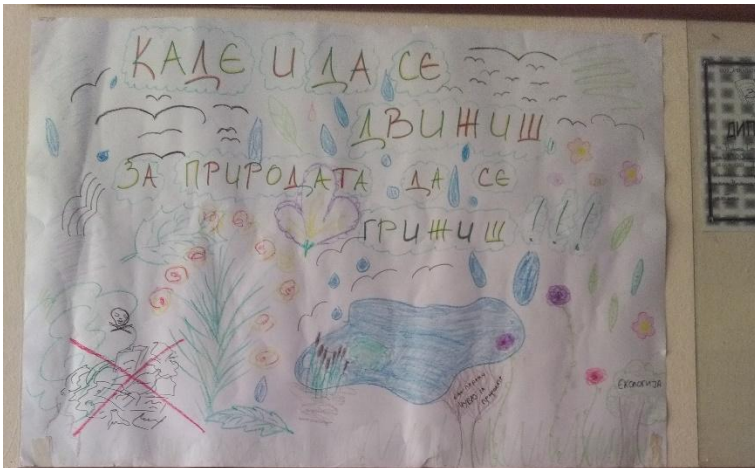 КАДЕ И ДА СЕ
ДВИЖИШ
ЗА ПРИРОДАТА ДА СЕ
ГРИЖИШ!!!
ЕКОЛОГИЈА